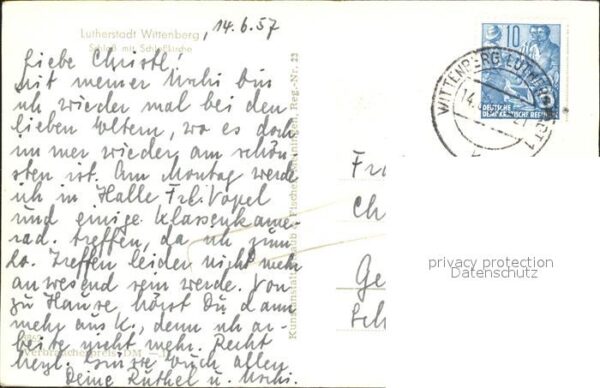 Lutherstadt Wittenberg, 14.6.57
Schloß mit Schloßkirche
Liebe Christl!
Mit meiner Uschi bin
ich wieder mal bei den
lieben Eltern, wo es doch
immer wieder am schön-
sten ist. Am Montag werde
ich in Halle Frl. Vogel
und einige Klassenkame-
rad. treffen, da ich zum
Treffen leider nicht mehr
anwesend sein werde. Von
zu Hause hörst Du dann
mehr aus K., denn ich ar-
beite nicht mehr. Recht
herzl. Grüße Euch allen
Deine Ruthel u. Uschi.
Verbraucherpreis DM
Kunstanstalt Straub & Fischer, Meiningen, Reg.-Nr. 23
10
DEUTSCHE
DEMOKRATISCHE REPUBLIK
WITTENBERG LUTHERSTADT
14.
Fr
Ch
Ge
Sch
privacy protection
Datenschutz